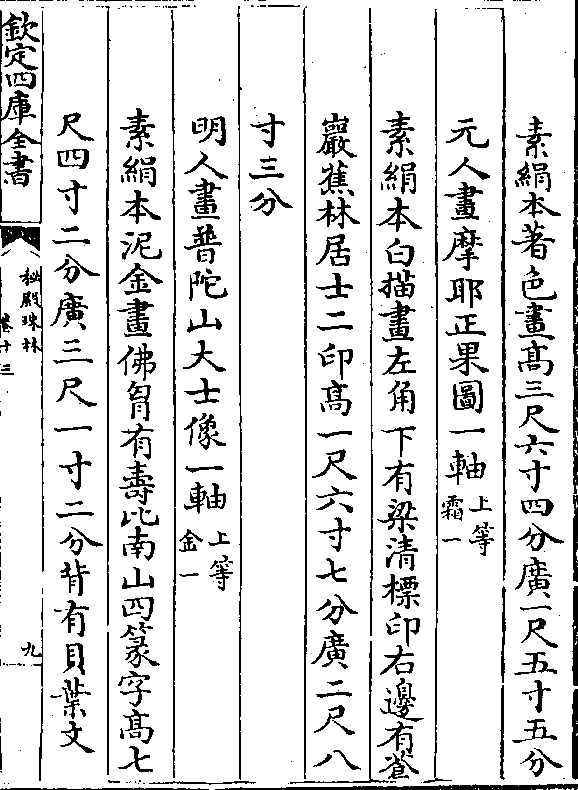 素絹本著色畫髙三尺六寸四分廣一尺五寸五分
元人畫摩耶正果圖一軸上等霜一
素絹本白描畫左角下有梁清標印右邊有蒼
巖蕉林居士二印髙一尺六寸七分廣二尺八
寸三分
明人畫普陀山大士像一軸上等金一
素絹本泥金畫佛胷有壽比南山四篆字髙七
尺四寸二分廣三尺一寸二分背有貝葉文
欽定四庫全書
秘殿珠林
卷十三
九